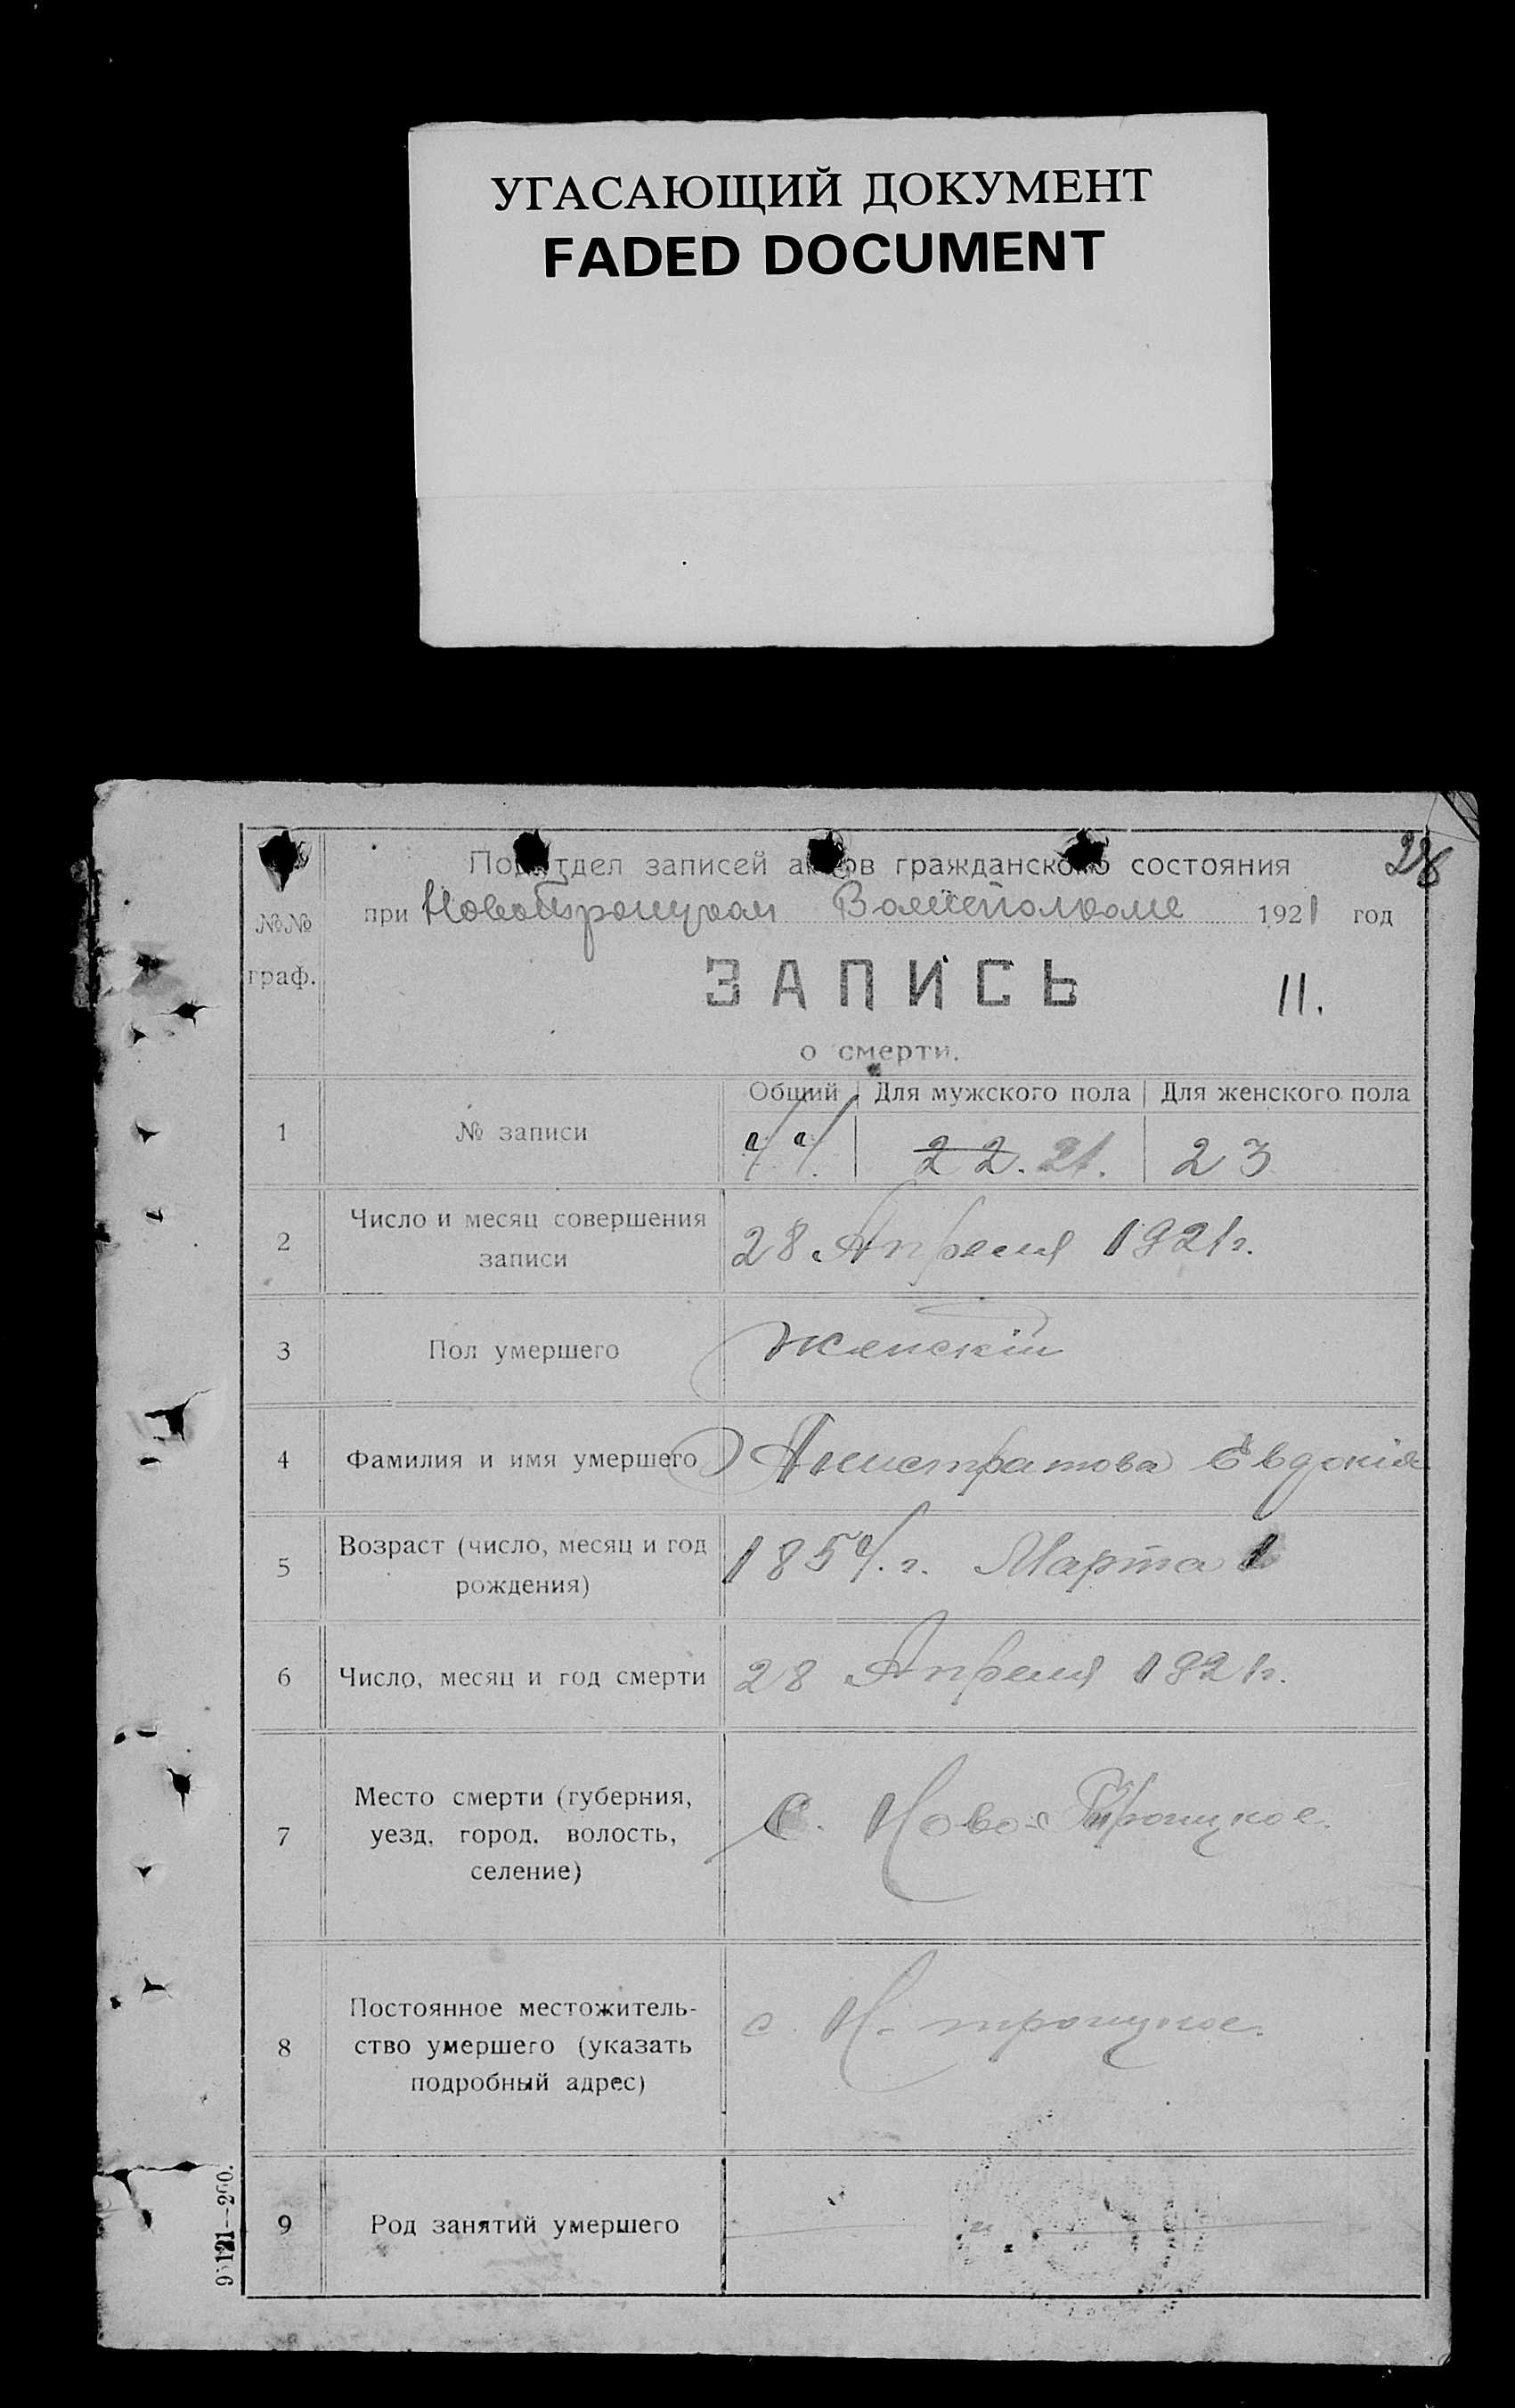 УГАСАЮЩИЙ ДОКУМЕНТ
FADED DOCUMENT
28
Подотдел записей актов гражданского состояния
при Новотроицком 1921 год
№№
граф.
ЗАПИСЬ
11.
о смерти.
Общий Для мужского пола Для женского пола
1 № записи 44. 22. 21. 23
2 Число и месяц совершения
записи
28 Апреля 1921 г.
3 Пол умершего женский
4 Фамилия и имя умершего Анистратова Евдокія
5 Возраст (число, месяц и год
рождения)
1854. г. Марта 1
6 Число, месяц и год смерти 28 Апреля 1921 г.
7 Место смерти (губерния,
уезд, город, волость,
селение)
С. Ново-Троицкое.
8 Постоянное местожитель-
ство умершего (указать
подробный адрес)
с. Н-троицкое.
9 Род занятий умершего